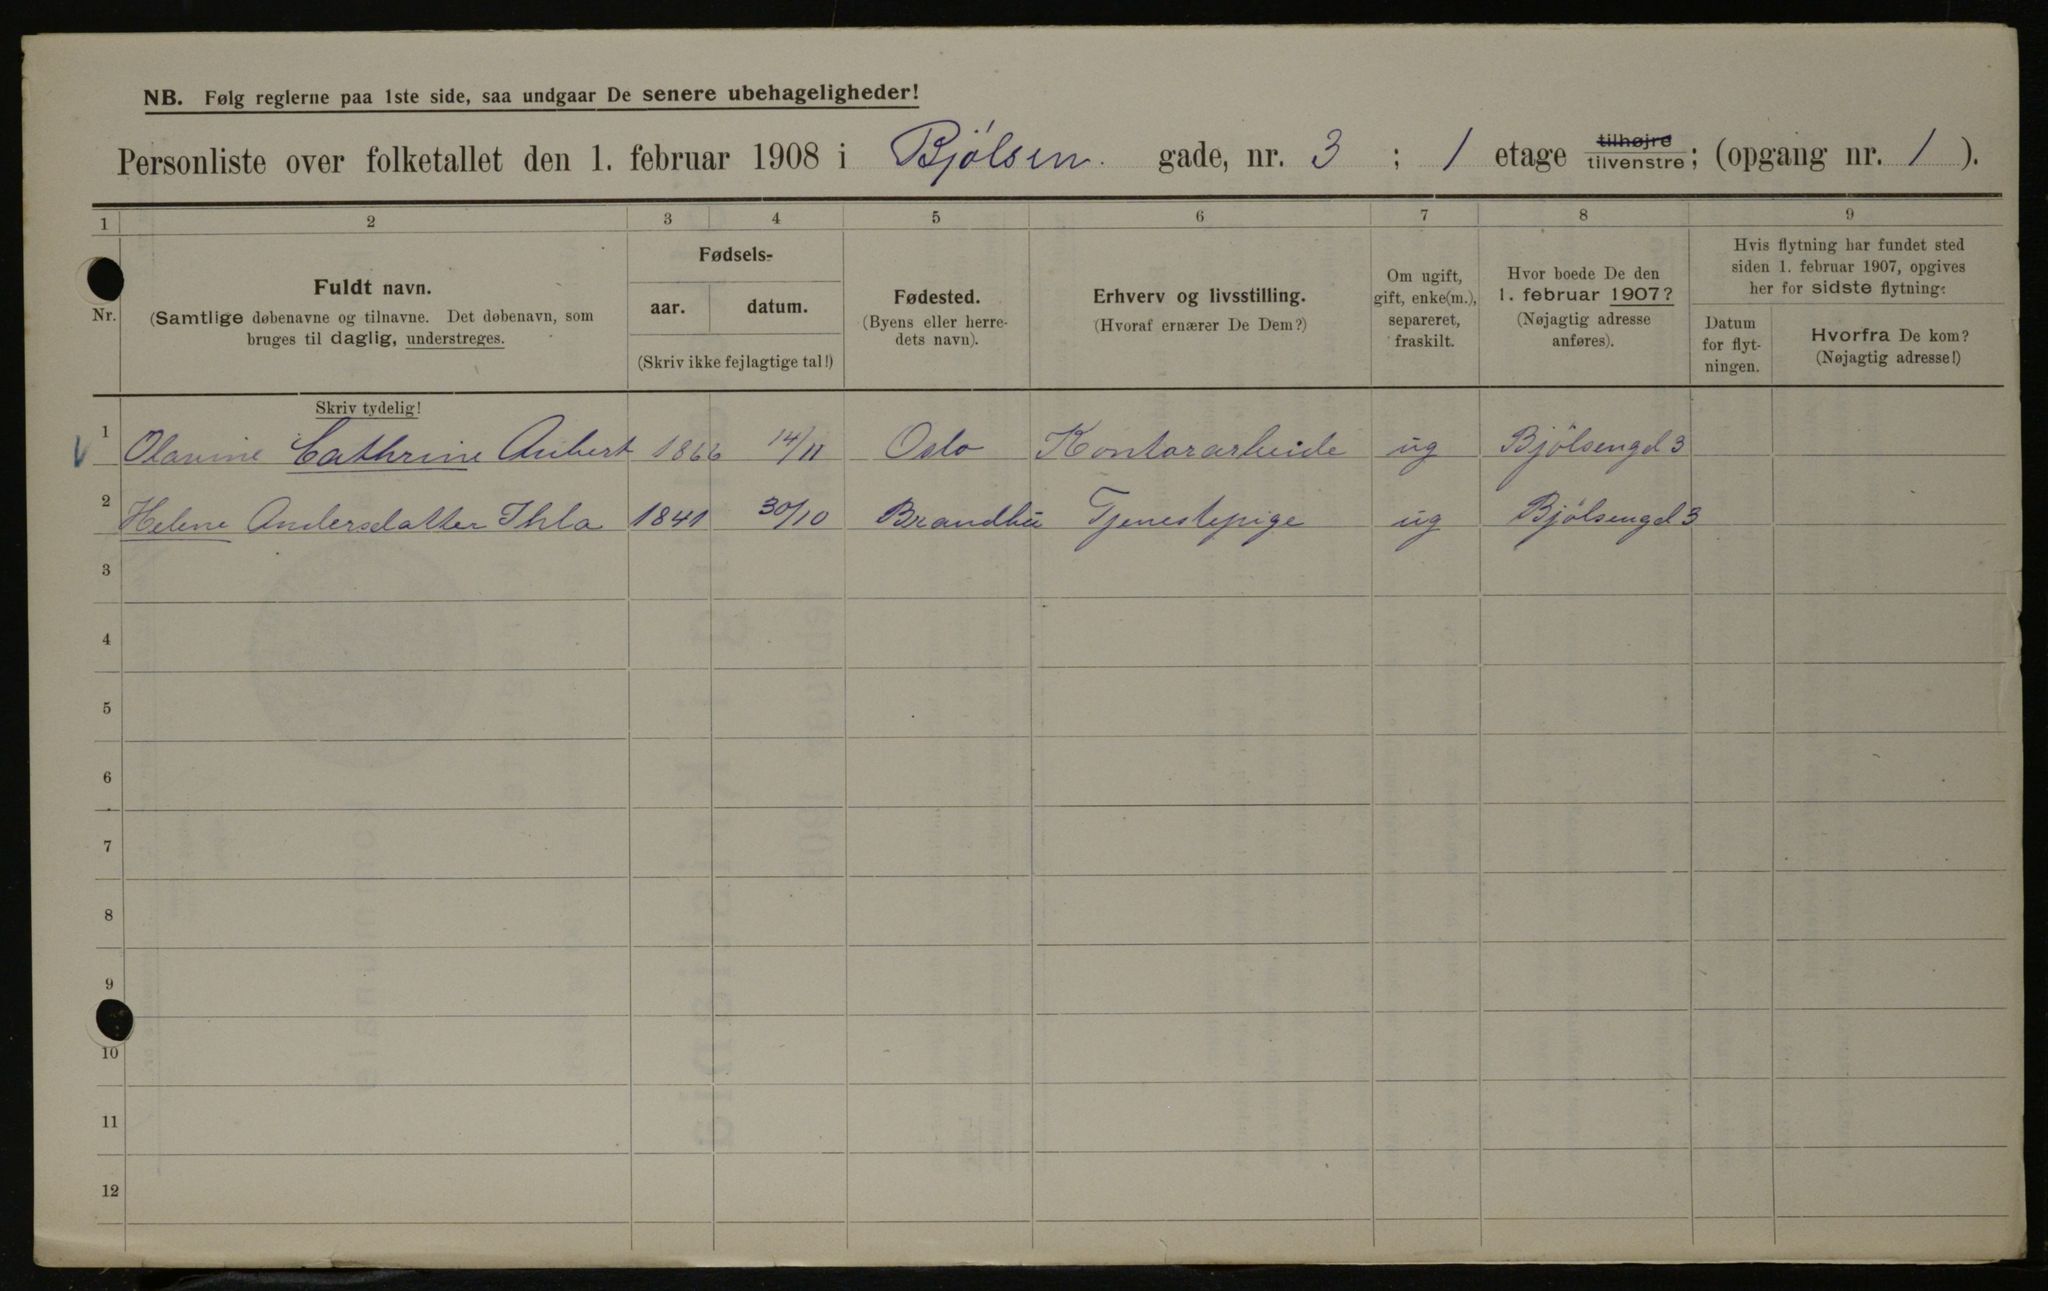 NB. Følg reglerne paa 1ste side, saa undgaar De senere ubehageligheder!
Personliste over folketallet den 1. februar 1908 i Bjölsen gade, nr. 3 ; 1 etage tilhøjre tilvenstre; (opgang nr. 1 ).
1 2 3 4 5 6 7 8 9
Nr.
Fuldt navn.
(Samtlige døbenavne og tilnavne. Det døbenavn, som
bruges til daglig, understreges.
Fødsels-
aar. datum.
(Skriv ikke fejlagtige tal!)
Fødested.
(Byens eller herre-
dets navn).
Erhverv og livsstilling.
(Hvoraf ernærer De Dem?)
Om ugift,
gift, enke(m.),
separeret,
fraskilt.
Hvor boede De den
1. februar 1907?
(Nøjagtig adresse
anføres).
Hvis flytning har fundet sted
siden 1. februar 1907, opgives
her for sidste flytning:
Datum
for flyt-
ningen.
Hvorfra De kom?
(Nøjagtig adresse!)
Skriv tydelig!
1 Olavine Cathrine Aubert 1866 14/11 Oslo Kontorarbeide ug Bjölsengd 3
2 Helene Andersdatter Ihla 1841 30/10 Brandbu Tjenestepige ug Bjölsengd 3
3
4
5
6
7
8
9
10
11
12